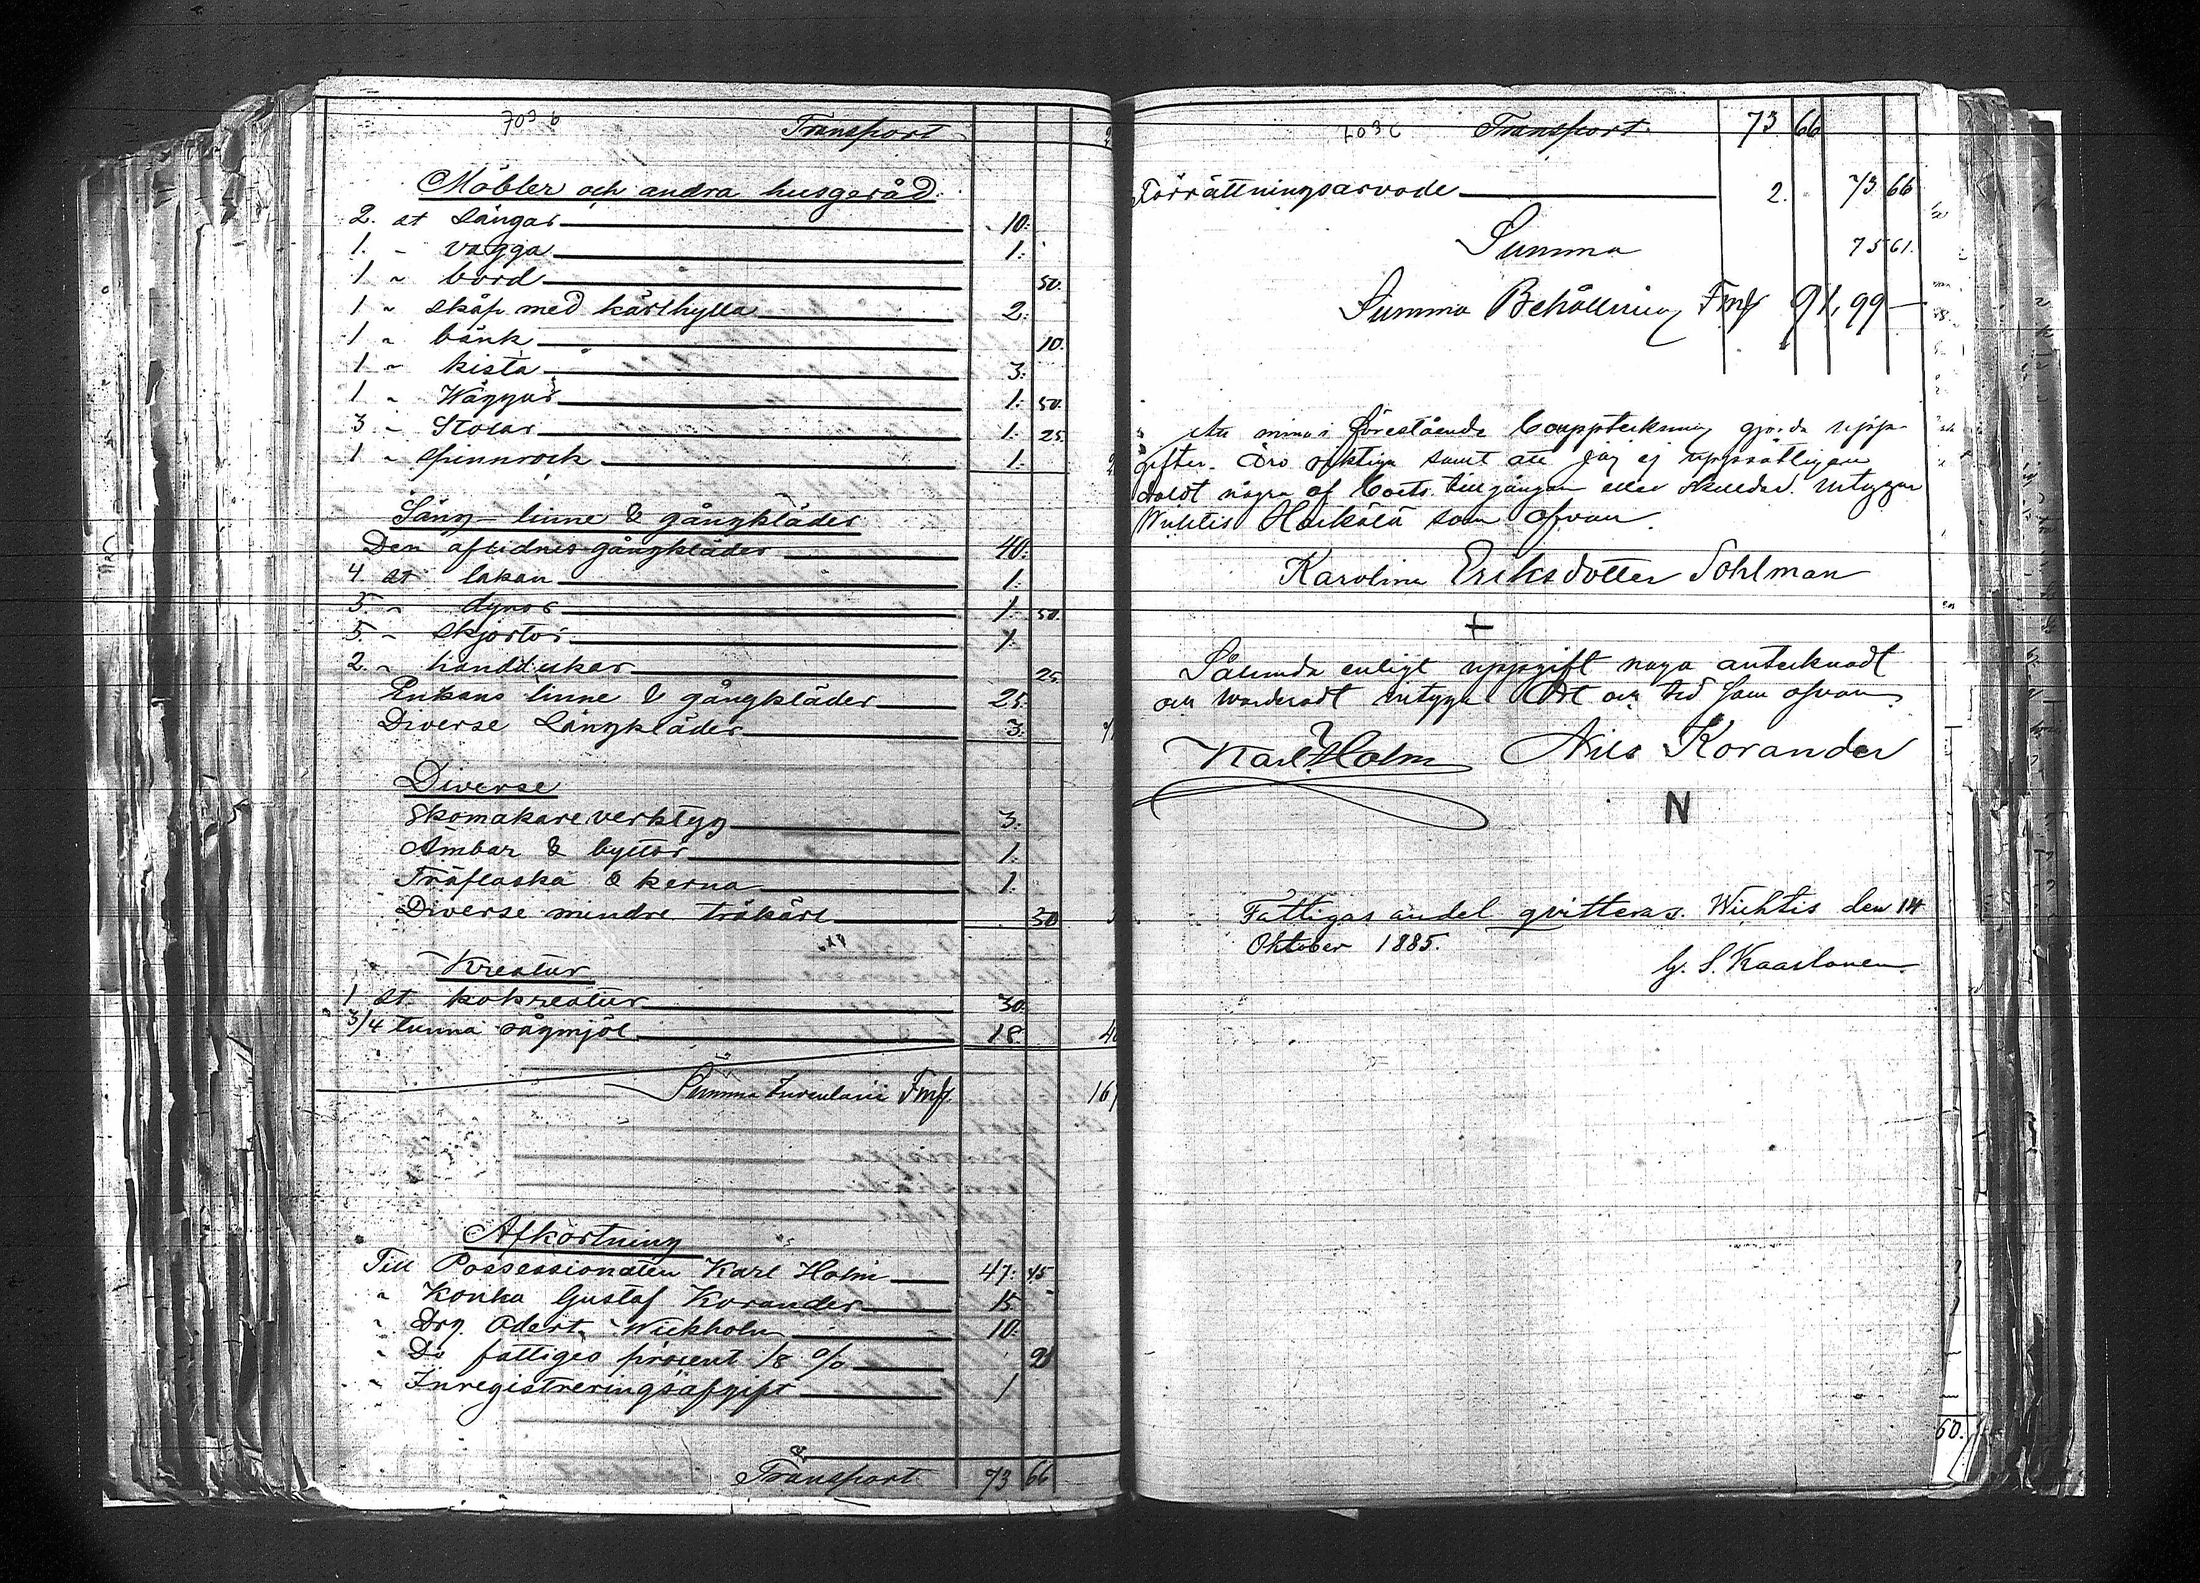 703 b Transport
Möbler och andra husgeråd.
2. st Sängar 10:
1. " vagga 1:
1 " bord 50.
1 " skåp med kärlhylla 2:
1 " bänk 10.
1 " kista 3:
1 " Väggur 1: 50.
3 " Stolar 1. 25
1 " spinnrock 1:
Säng- linne & gångkläder
Den aflidnes gångkläder 40:
4 st lakan 1:
3. " dynor 1: 50.
5. " skjortor 1.
2. " handdukar 25.
Enkans linne & gångkläder 25:
Diverse Sängkläder 3:
Diverse
Skomakare verktyg 3:
Ämbar & byttor 1:
Träflaska & kerna 1.
Diverse mindre träkärl 50
Kreatur
1 st. kokreatur 30:
3/4 tunna rågmjöl 18
Summa Inventarii Fmk
Afkortning
Till Possessionaten Karl Holm 47: 45
" Gustaf Korander 15
" Drg. Wickholm 10:
" De fattiges procent 1/8 %
" Inregistreringsafgift 1
Transport 73 66
703 c Transport. 73 66
Förrättningsarvode 2. 73 66
Summa 75 61.
Summa Behållning Fmk 91,99 —
att mina i förestående Bouppteckning gjorda upp-
gifter äro riktiga samt att jag ej uppsåtligen
doldt några af boets tillgångar eller skulder. intygar
Wichtis Härkälä som ofvan.
Karolina Eriksdotter Sohlman
+
Sålunda enligt uppgift noga antecknadt
och värderadt intyga Ort och tid som ofvan.
Karl Holm Nils Korander
N
Fattigas andel qvitteras. Wichtis den 14
Oktober 1885.
G. S. Kaarlonen.
60.